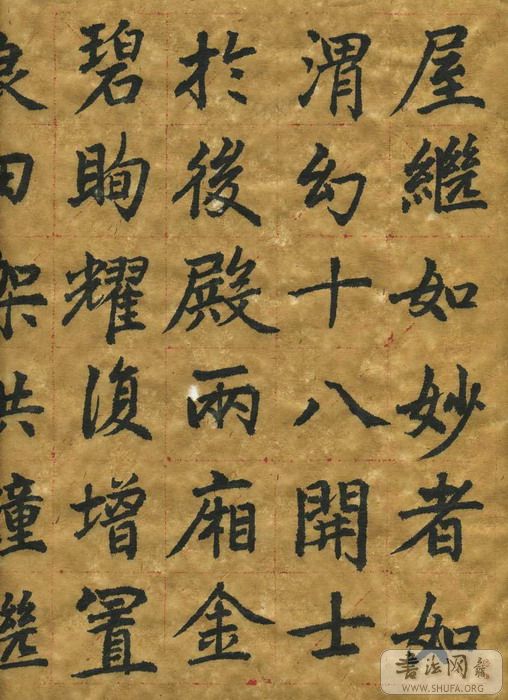 屋繼如妙者如
渭幻十八開士
於後殿兩廂金
碧眴耀復增置
田架
書法网
WWW.SHUFA.ORG